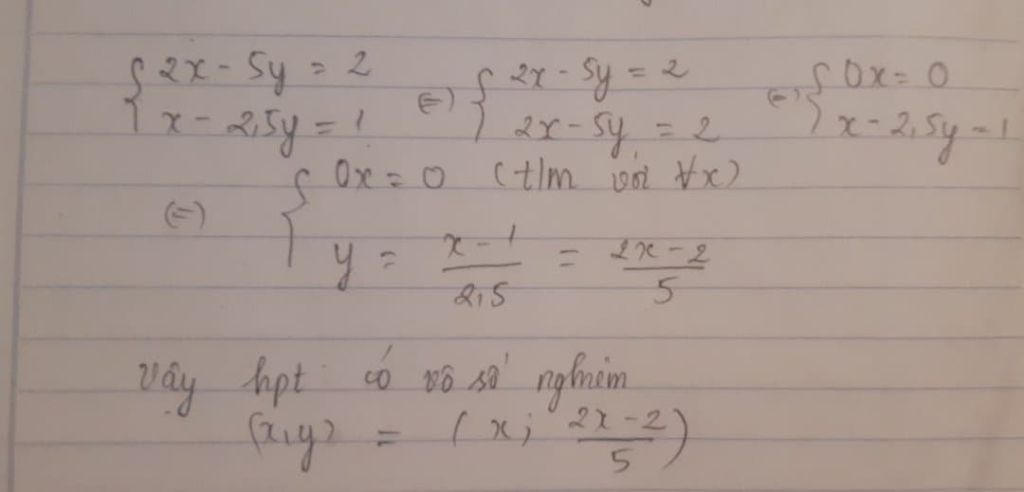 { 2x - 5y = 2 (=) { 2x - 5y = 2 (=) { 0x = 0
x - 2,5y = 1 2x - 5y = 2 x - 2,5y = 1
(=) { 0x = 0 (t/m với ∀x)
y = \frac{x-1}{2,5} = \frac{2x-2}{5}
Vậy hpt có vô số nghiệm
(x,y) = (x; \frac{2x-2}{5})